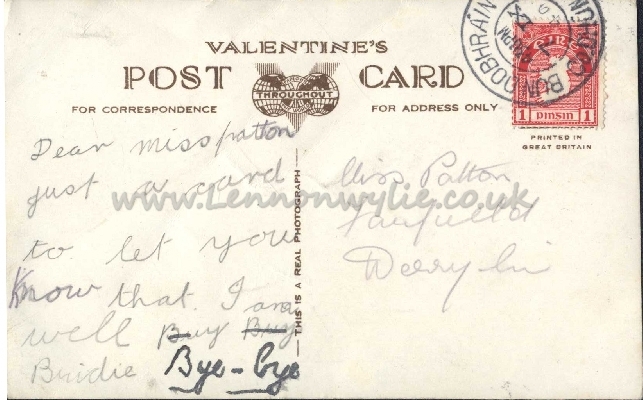 VALENTINE'S
POST CARD
THROUGHOUT
FOR CORRESPONDENCE
FOR ADDRESS ONLY
BUNDOBHRÁIN
1 PINSIN 1
PRINTED IN
GREAT BRITAIN
THIS IS A REAL PHOTOGRAPH
www.Lennonwylie.co.uk
Dear miss patton
just a card
to let you
Know that I am
well Buy Buy
Birdie Bye-bye
Miss Patton
Fairfield
Derrylin